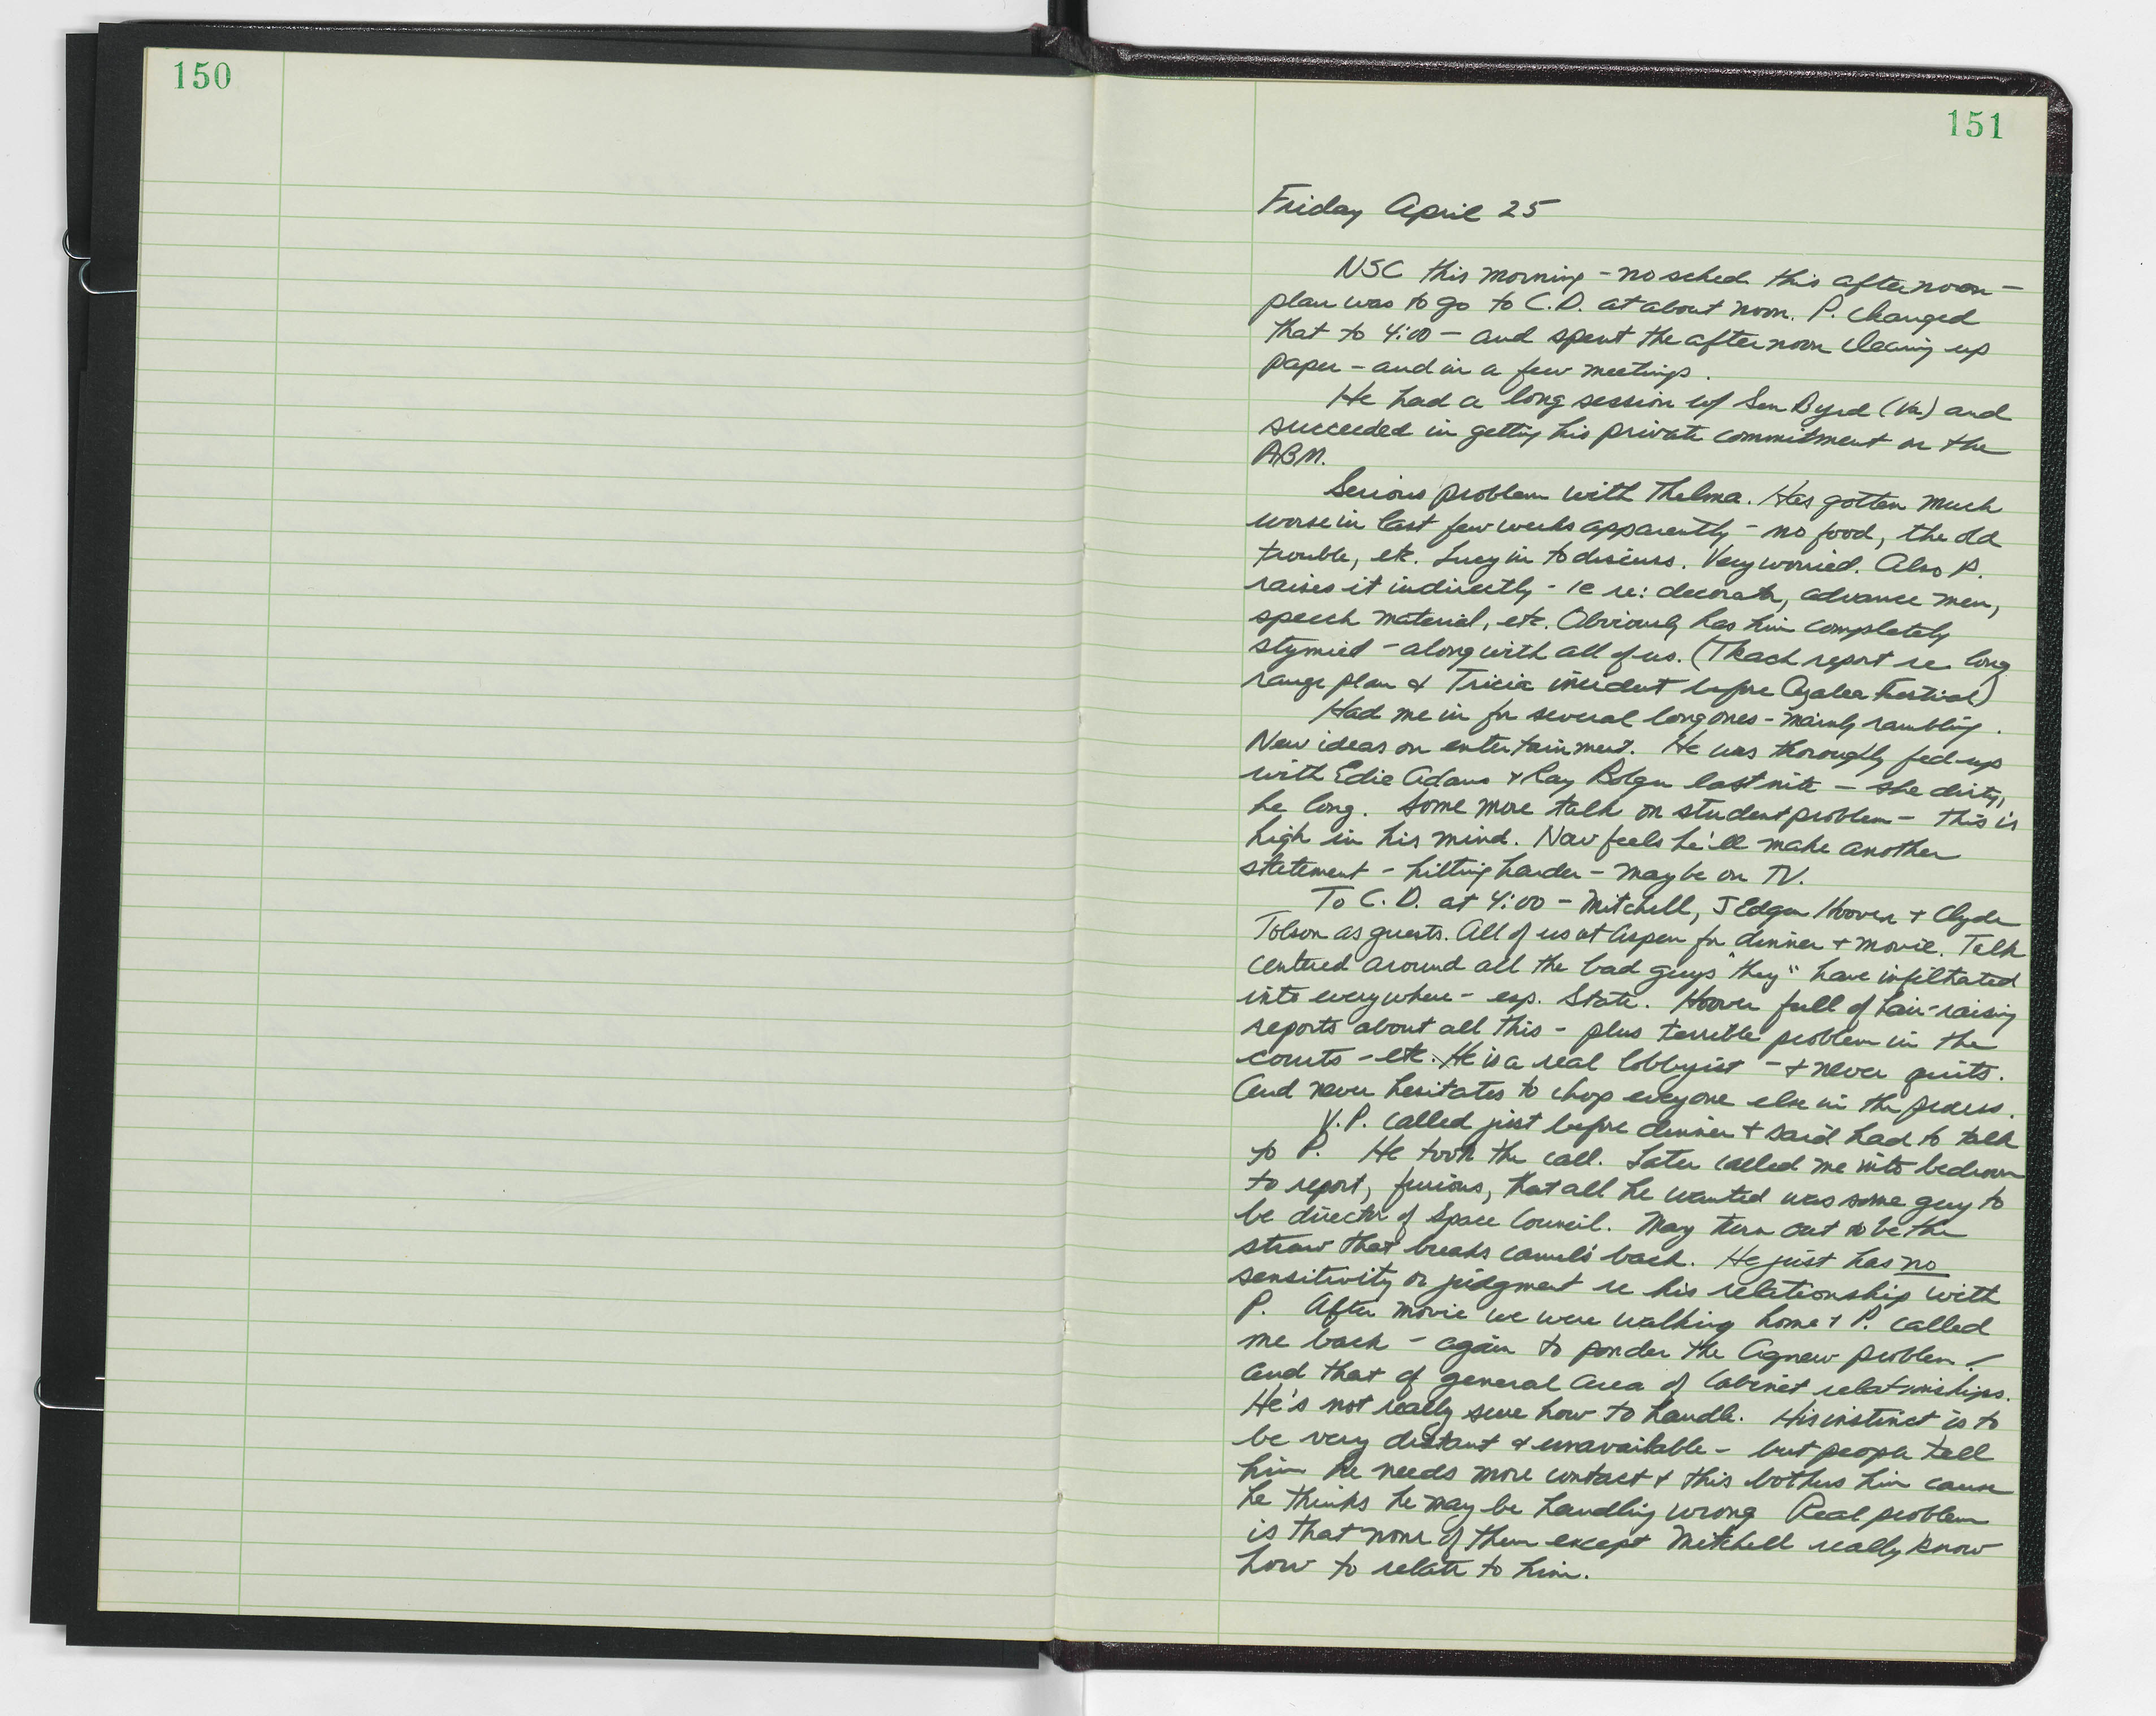 150
151
Friday April 25
NSC this morning - no sched this afternoon -
plan was to go to C.D. at about noon. P. changed
that to 4:00 - and spent the afternoon clearing up
paper - and in a few meetings.
He had a long session w/ Sen Byrd (Va) and
succeeded in getting his private commitment on the
ABM.
Serious problem with Thelma. Has gotten much
worse in last few weeks apparently - no food, the old
trouble, etc. Lucy in to discuss. Very worried. Also P.
raises it indirectly - ie re: decorator, advance men,
speech material, etc. Obviously has him completely
stymied - along with all of us. (Tkach report re long
range plan & Tricia incident before Azalea Festival)
Had me in for several long ones - mainly rambling.
New ideas on entertainment. He was thoroughly fed-up
with Edie Adams & Ray Bolger last nite - she dirty,
he long. Some more talk on student problem - this is
high in his mind. Now feels he'll make another
statement - hitting harder - maybe on TV.
To C.D. at 4:00 - Mitchell, J Edgar Hoover & Clyde
Tolson as guests. All of us at Aspen for dinner & movie. Talk
centered around all the bad guys "they" have infiltrated
into everywhere - esp. State. Hoover full of hair-raising
reports about all this - plus terrible problem in the
courts - etc. He is a real lobbyist - & never quits.
And never hesitates to chop everyone else in the process.
V.P. called just before dinner & said had to talk
to P. He took the call. Later called me into bedroom
to report, furious, that all he wanted was some guy to
be director of Space Council. May turn out to be the
straw that breaks camel's back. He just has no
sensitivity or judgment re his relationship with
P. After movie we were walking home & P. called
me back - again to ponder the Agnew problem -
and that of general area of Cabinet relationships.
He's not really sure how to handle. His instinct is to
be very distant & unavailable - but people tell
him he needs more contact & this bothers him cause
he thinks he may be handling wrong Real problem
is that none of them except Mitchell really know
how to relate to him.